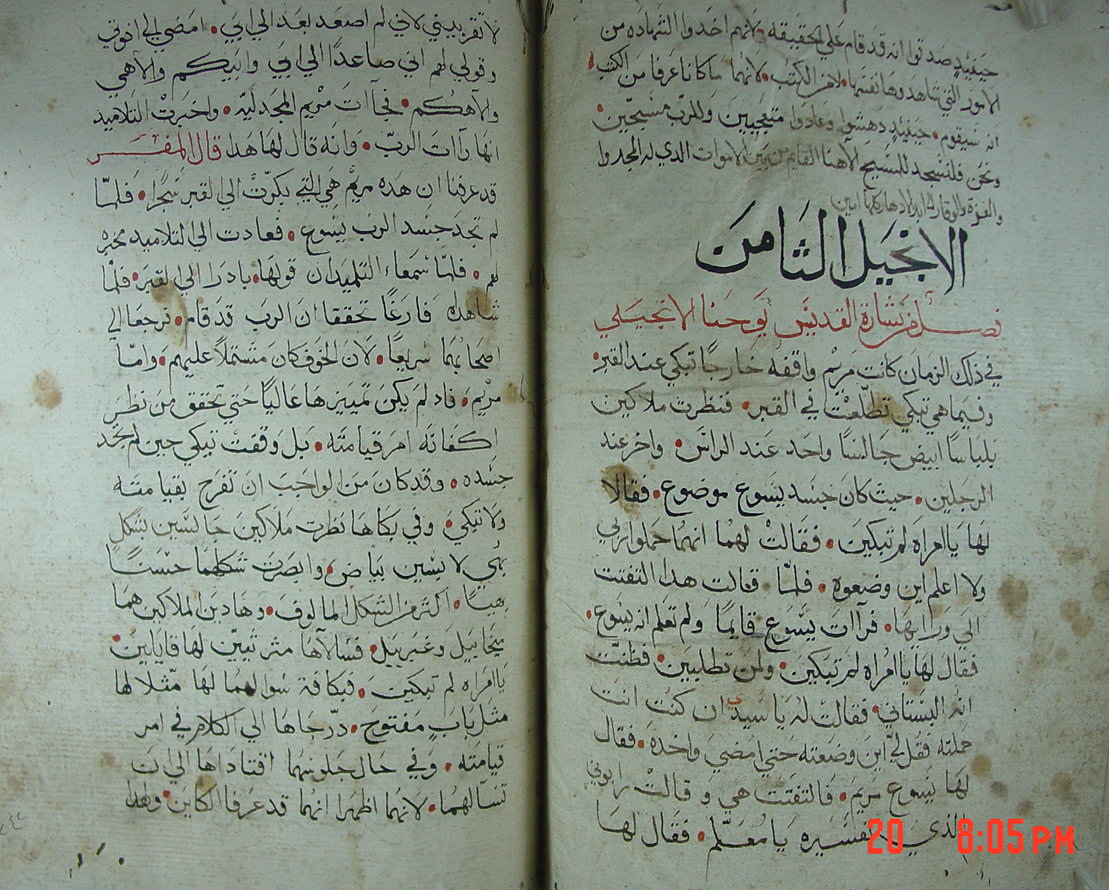 حينيدٍ صدقوا انه قد قام على الحقيقه لانهم اخدوا الشهاده من
الامور التي تشاهد وهما نفسهما لا من الكتب لانهما ماكانا عرفا من الكتب
انه سيقوم حينيدٍ دهشوا وعادوا متعجبين وللرب مسبحين
ونحن فلنسبحد للمسيح الاهنا القايم من بين الاموات الدي له المجد وا
والعزة والوقار الى ابد الادهار كلها امين
الانجيل الثامن
فصل من بشارة القديس يوحنا الانجيلي
في ذلك الزمان كانت مريم واقفه خارجًا تبكي عند القبر
وفيما هي تبكي تطلعت في القبر فنظرت ملاكين
بلباسًا ابيض جالسًا واحد عند الراس واخر عند
الرجلين حيث كان جسد يسوع موضوع فقالا
لها ياامراه لم تبكين فقالت لهما انهما حملوا ربي
ولا اعلم اين وضعوه فلما قالت هدا التفتت
الي ورايها فرآت يسوع قايمًا ولم تعلم انه يسوع
فقال لها ياامراه لم تبكين ولمن تطلبين فظنت
انه البستاني فقالت له يا سيدي ان كنت انت
حملته فقل لي اين وضعته حتي امضي واخده فقال
لها يسوع مريم فالتفتت هي و قالت رابوني
الذي تفسيره يا معلم فقال لها
20 8:05 PM
لا تقربيني لاني لم اصعد بعد الي ابي امضي الي اخوتي
وقولي لهم اني صاعدًا الي ابي وابيكم والاهي
والاهكم فجاات مريم المجدليه واخبرت التلاميد
انها رآت الرب وانه قال لها هدا قال المفسر
قد عرفنا ان هده مريم هي التي بكرت الى القبر سحرًا فلما
لم تجد جسد الرب يسوع فعادت الي التلاميد مخبره
لهم فلما سمعاء التلميدان قولها بادرا الي القبر فلما
شاهداه فارغًا تحققا ان الرب قد قام ثم رجعا الي
اصحابهما سريعًا لان الخوف كان مشتملاً عليهم واما
مريم فاد لم يكن تمييزها عاليًا حتي تحقق من نظر
اكفانه امر قيامته بل وقفت تبكي حين لم تجد
جسده وقد كان من الواجب ان تفرح بقيامته
ولا تبكي وفي بكاها نظرت ملاكين جالسين بشكل
بهي لابسين بياض وابصرت شكلهما حسنًا
بهيًا اكثر من الشكل المالوف وهادين الملاكين هما
ميخاييل وغبرييل فسالاها قايلين
ياامراه لم تبكين فبكافة سوالهما لها مثلا لها
مثل باب مفتوح درجاها الي الكلام في امر
قيامته وفي حال جلوسهما اقتاداها الي ان
تسالهما لانهما اظهرا انهما قد عرفا الكاين ولهدا